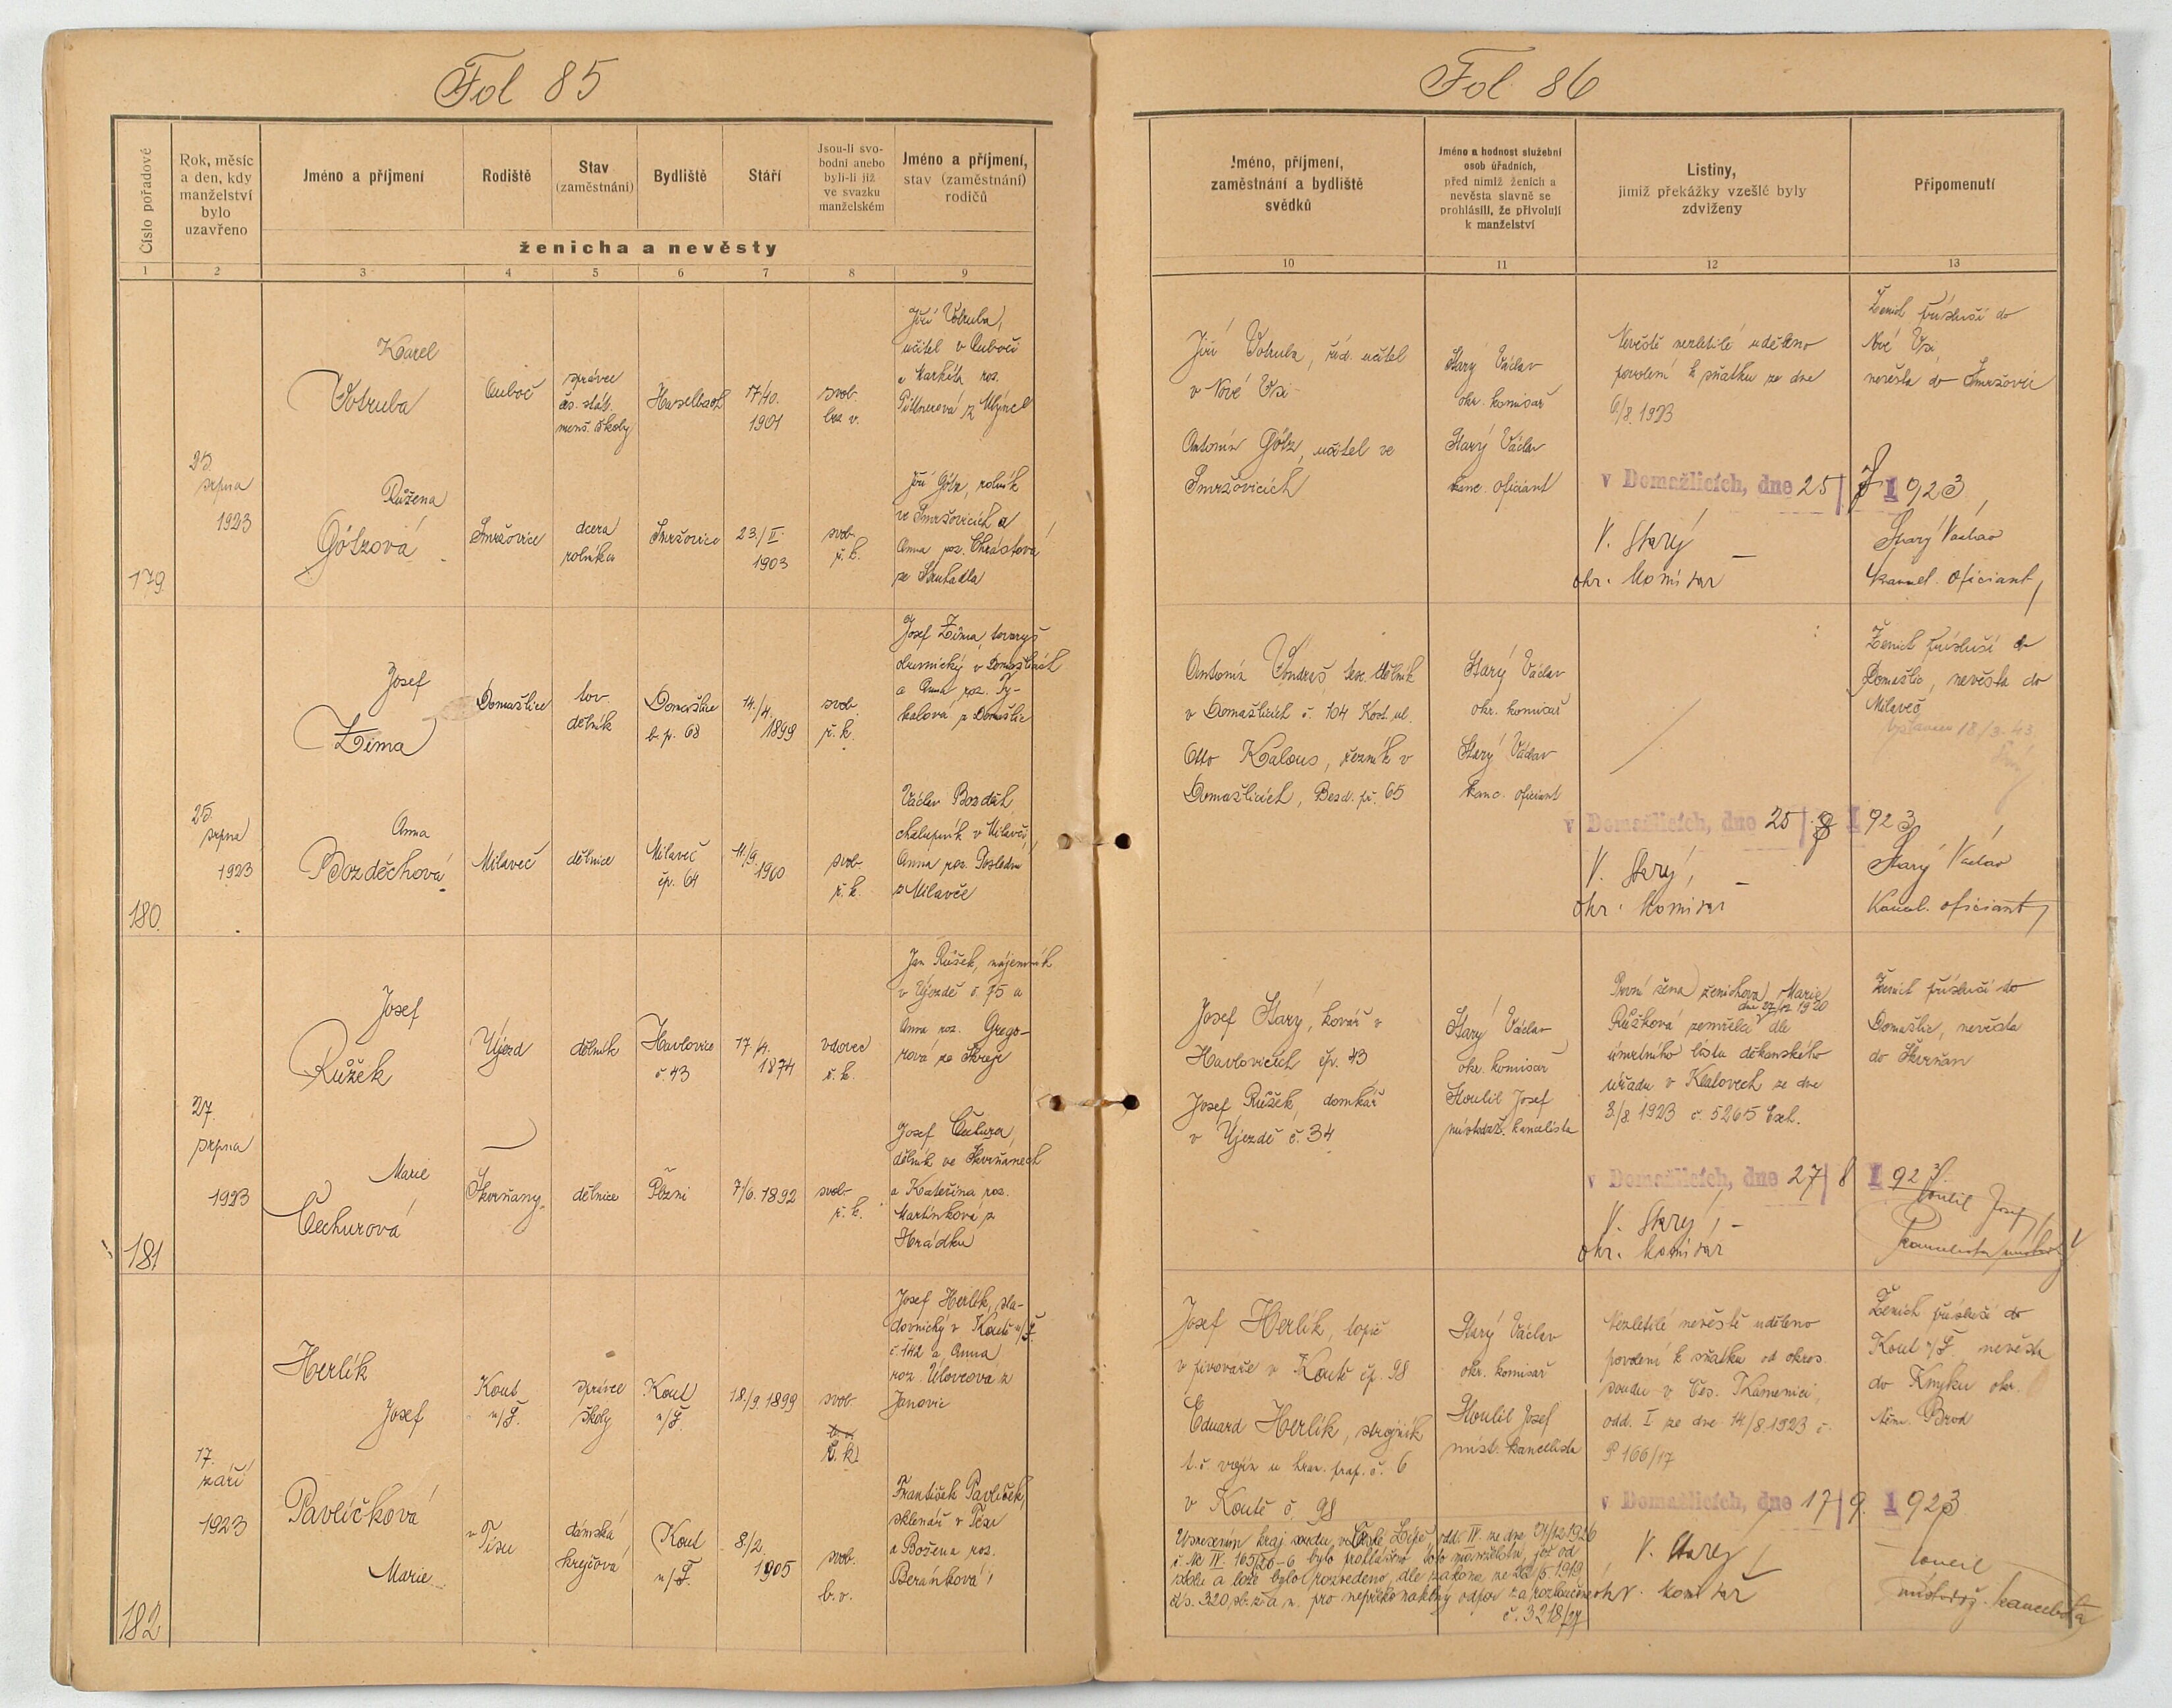 Fol 85
Číslo pořadové
Rok, měsíc
a den, kdy
manželství
bylo
uzavřeno
Jméno a příjmení
Rodiště
Stav
(zaměstnání)
Bydliště
Stáří
Jsou-li svo-
bodni anebo
byli-li již
ve svazku
manželském
Jméno a příjmení,
stav (zaměstnání)
rodičů
ženicha a nevěsty
1 2 3 4 5 6 7 8 9
179
25.
srpna
1923
Karel
Votruba
Luboč
správce
čs. stát.
menš. školy
Haselbach
17/10.
1901
svob.
bez v.
Jiří Votruba,
učitel v Luboči
a Markéta roz.
Růžena
Götzová
Smržovice
dcera
rolníka
Smržovice
23./II.
1903
svob.
ř. k.
Jiří Götz, rolník
ve Smržovicích a
Anna roz. Chrástová
180
25.
srpna
1923
Josef
Zima
Domažlice
tov.
dělník
Domažlice
b. p. 68
14./4.
1899
svob.
ř. k.
Josef Zima, tovaryš
v Domažlicích
a Anna, roz. Ty-
kalová z Domažlic
Anna
Bozděchová
Milaveč
dělnice
Milaveč
čp. 64
11./9.
1900
svob.
ř. k.
Václav Bozděch
chalupník v Milavči,
Anna roz.
z Milavče
181
27.
srpna
1923
Josef
Růžek
Újezd
dělník
Havlovice
č. 43
17./4.
1874
vdovec
ř. k.
Jan Růžek, nájemník
v Újezdě č. 75 a
Anna roz. Grego-
rová ze
Marie
Čechurová
Škvrňany
dělnice
Plzni
7/6. 1892
svob.
ř. k.
Josef Čechura,
dělník ve Škvrňanech
a Kateřina roz.
Martínková z
Hrádku
182
17.
září
1923
Herlík
Josef
Kout
n/Š.
správce
školy
Kout
n/Š.
18./9. 1899
svob.
ř. k.
Josef Herlík, sla-
dovnický v Koutě n/Š
č. 142 a Anna
roz. Úlovcová z
Janovic
Pavlíčková
Marie
v
Tisu
dámská
krejčová
Kout
n/Š.
8./2.
1905
svob.
b. v.
František Pavlíček,
sklenář v Tisu
a Božena roz.
Beránková
Fol. 86
Jméno, příjmení,
zaměstnání a bydliště
svědků
Jméno a hodnost služební
osob úředních,
před nimiž ženich a
nevěsta slavně se
prohlásili, že přivolují
k manželství
Listiny,
jimiž překážky vzešlé byly
zdviženy
Připomenutí
10 11 12 13
Jiří Votruba, říd. učitel
v Nové Vsi
Antonín Götz, učitel ve
Smržovicích
Starý Václav
okr. komisař
Starý Václav
kanc. oficiant
Nevěstě nezletilé uděleno
povolení k sňatku ze dne
6/8. 1923
v Domažlicích, dne 25/8 1923
V. Starý
okr. komisar
Ženich přísluší do
Nové Vsi
nevěsta do Smržovic
Starý Václav
kancel. oficiant
Antonín Vondraš, tex. dělník
v Domažlicích č. 104 Kost. ul.
Otto Kalous, řezník v
Domažlicích, Bezd. př. 65
Starý Václav
okr. komisař
Starý Václav
kanc. oficiant
v Domažlicích, dne 25/8 1923
V. Starý,
okr. komisar
Ženich přísluší do
Domažlic, nevěsta do
Milavče
18/3. 43
Starý Václav
kancel. oficiant
Josef Starý, kovář v
Havlovicích čp. 43
Josef Růžek, domkář
v Újezdě č. 34
Starý Václav
okr. komisař
Houlil Josef
místodrž. kancelista
První žena ženichova, Marie
dne 27/12 1920
Růžková zemřela dle
úmrtního listu děkanského
úřadu v Klatovech ze dne
3/8. 1923 č. 5265 Exh.
v Domažlicích, dne 27/8 1923
V. Starý,
okr. komisar
Ženich přísluší do
Domažlic, nevěsta
do Škvrňan
Houlil Josef
Josef Herlík, topič
v pivováře v Koutě čp. 98
Eduard Herlík, strojník
t. č. vojín u hran. prap. č. 6
v Koutě č. 98
Starý Václav
okr. komisař
Houlil Josef
míst. kancelista
Nezletilé nevěstě uděleno
povolení k sňatku od okres.
soudu v Čes. Kamenici,
odd. I ze dne 14/8. 1923 č.
P 166/17
v Domažlicích, dne 17/9. 1923
V. Starý,
okr. komisař
Ženich přísluší do
Kout n/Š. nevěsta
do Knyku okr.
Něm. Brod
místodrž. kancelista
Usnesením kraj. soudu v České Lípě, odd. IV. ze dne 31/12 1926
č. Nc IV. 165/26-6 bylo prohlášeno toto manželství, jež od
stolu a lože bylo rozvedeno, dle zákona ze 22/5. 1919
čís. 320, sb. z. a n. pro nepřekonatelný odpor za rozloučené
č. 3218/27